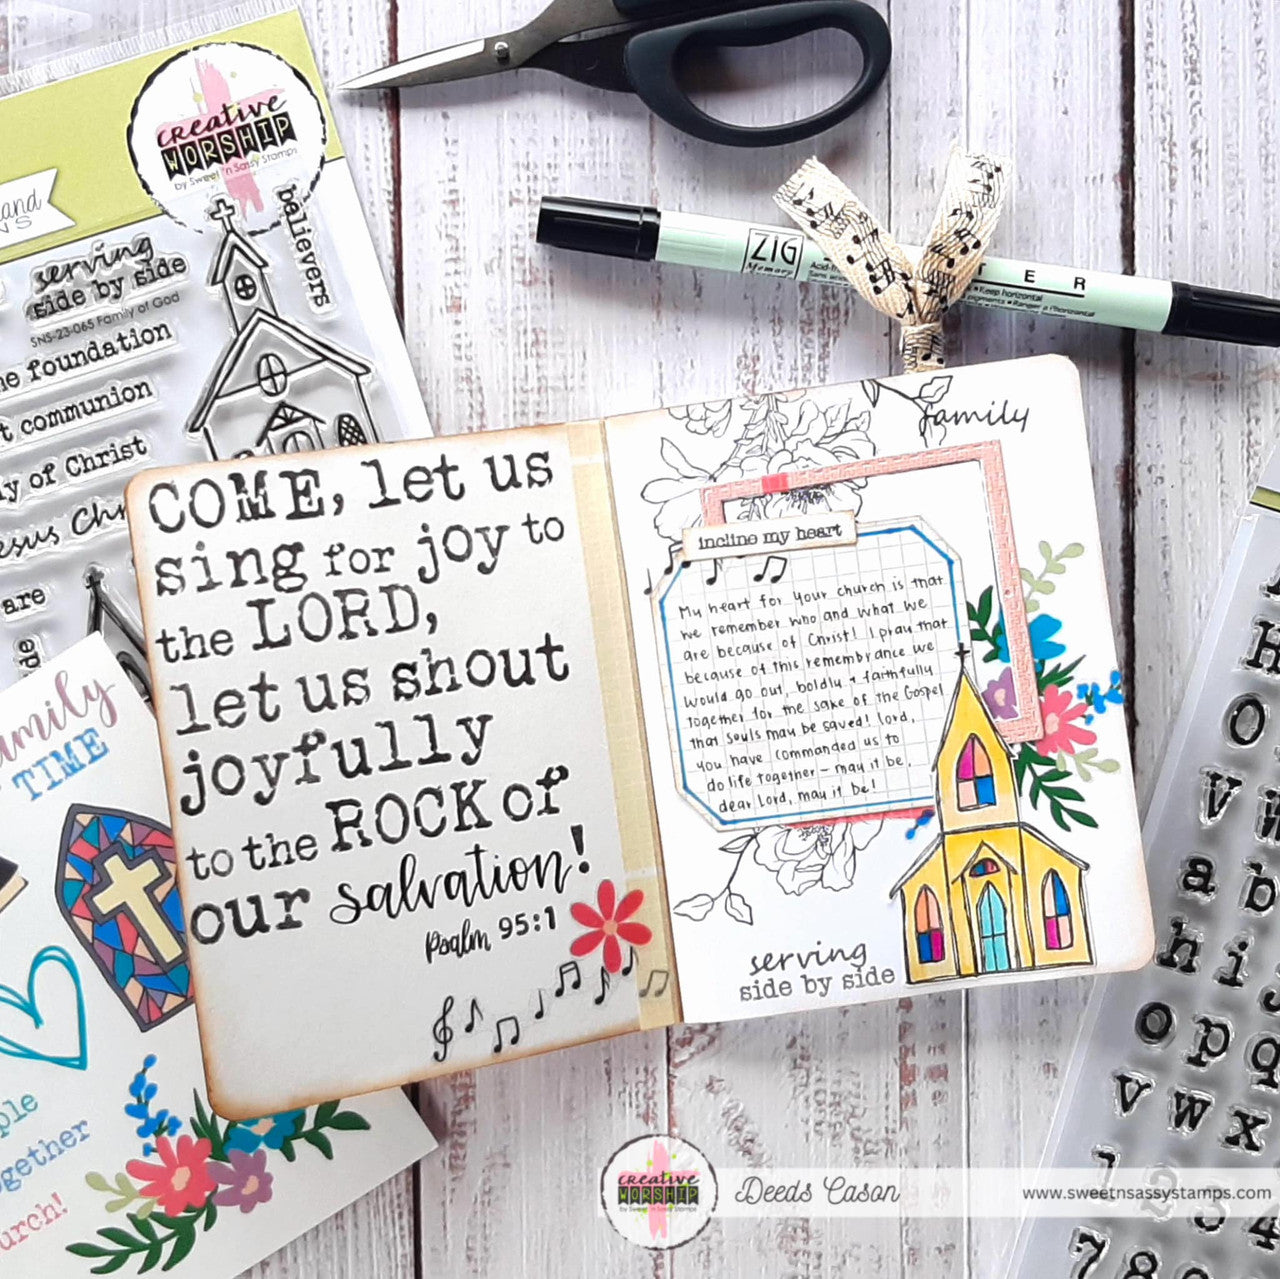 creative
WORSHIP
by Sweet 'n Sassy Stamps
believers
serving
side by side
SNS-23-065 Family of God
foundation
communion
of Christ
are
TIME
together
ZIG
Memory
family
COME, let us
sing for joy to
the LORD,
let us shout
joyfully
to the ROCK of
our salvation!
Psalm 95:1
incline my heart
My heart for your church is that
we remember who and what we
are because of Christ! I pray that
because of this remembrance we
would go out, boldly + faithfully
together for the sake of the Gospel
that souls may be saved! lord,
you have commanded us to
do life together - may it be,
dear lord, may it be!
serving
side by side
creative
WORSHIP
by Sweet 'n Sassy Stamps
Deeds Cason
www.sweetnsassystamps.com